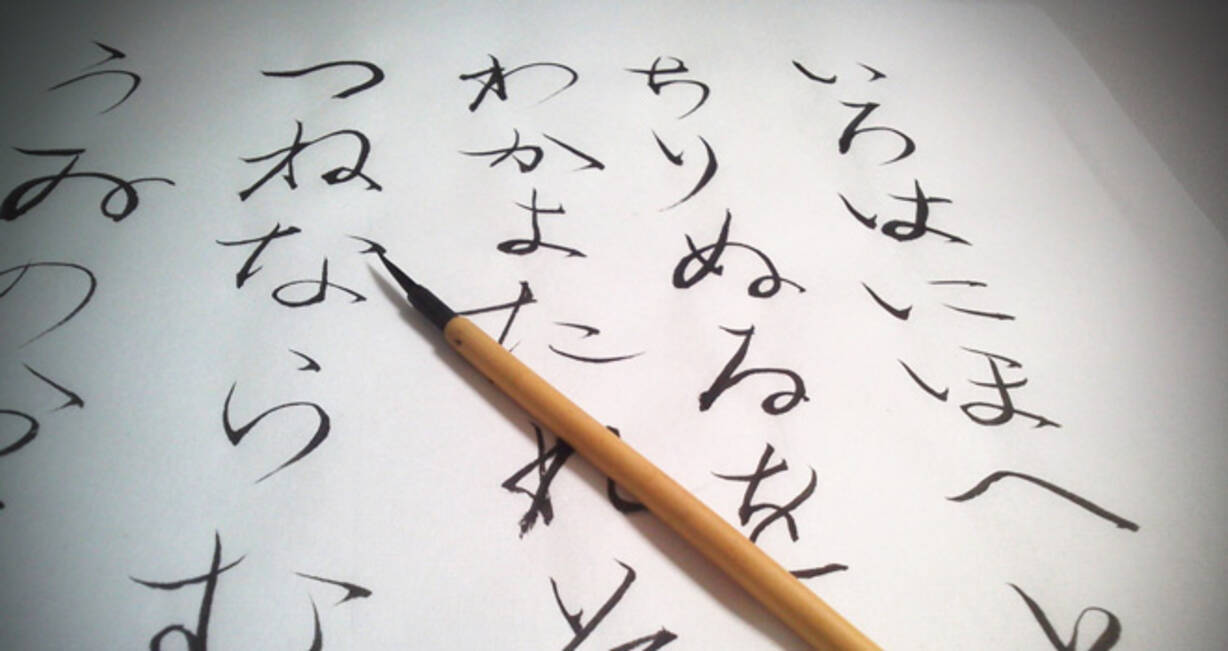 いろはにほへと
ちりぬるを
わかよたれそ
つねならむ
うゐのお